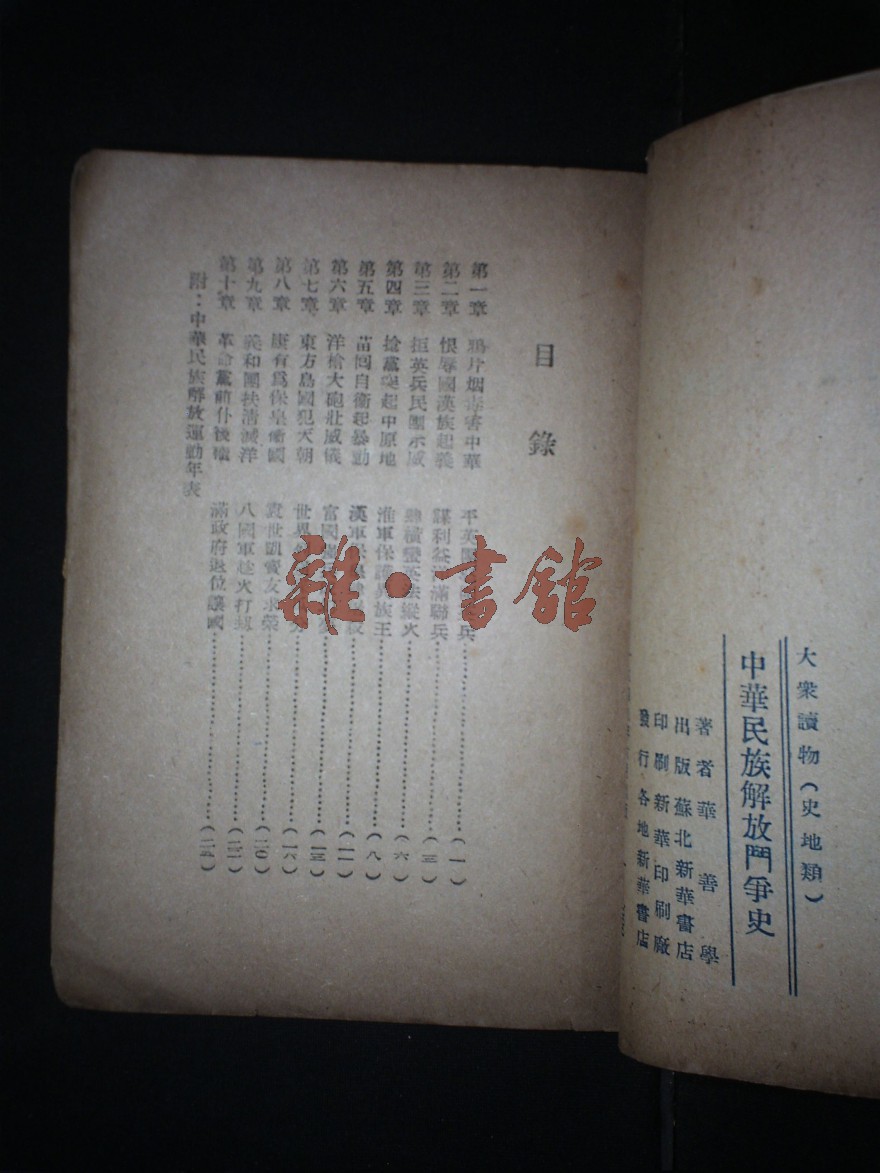 大衆讀物(史地類)
中華民族解放鬥爭史
著者 華善學
出版 蘇北新華書店
印刷 新華印刷廠
發行 各地新華書店
目錄
第一章 鴉片烟毒害中華 平英團 兵 (一)
第二章 恨辱國漢族起義 謀利益洋滿聯兵 (三)
第三章 拒英兵民團示威 縱火 (六)
第四章 捻黨突起中原地 淮軍保護異族王 (八)
第五章 苗囘自衛起暴動 漢軍 (一一)
第六章 洋槍大砲壯威儀 富國 (一三)
第七章 東方島國犯天朝 世界 (一六)
第八章 康有爲保皇衛國 袁世凱賣友求榮 (二〇)
第九章 義和團扶清滅洋 八國軍趁火打劫 (二二)
第十章 革命黨前仆後繼 滿政府退位讓國
附:中華民族解放運動年表
雜·書館